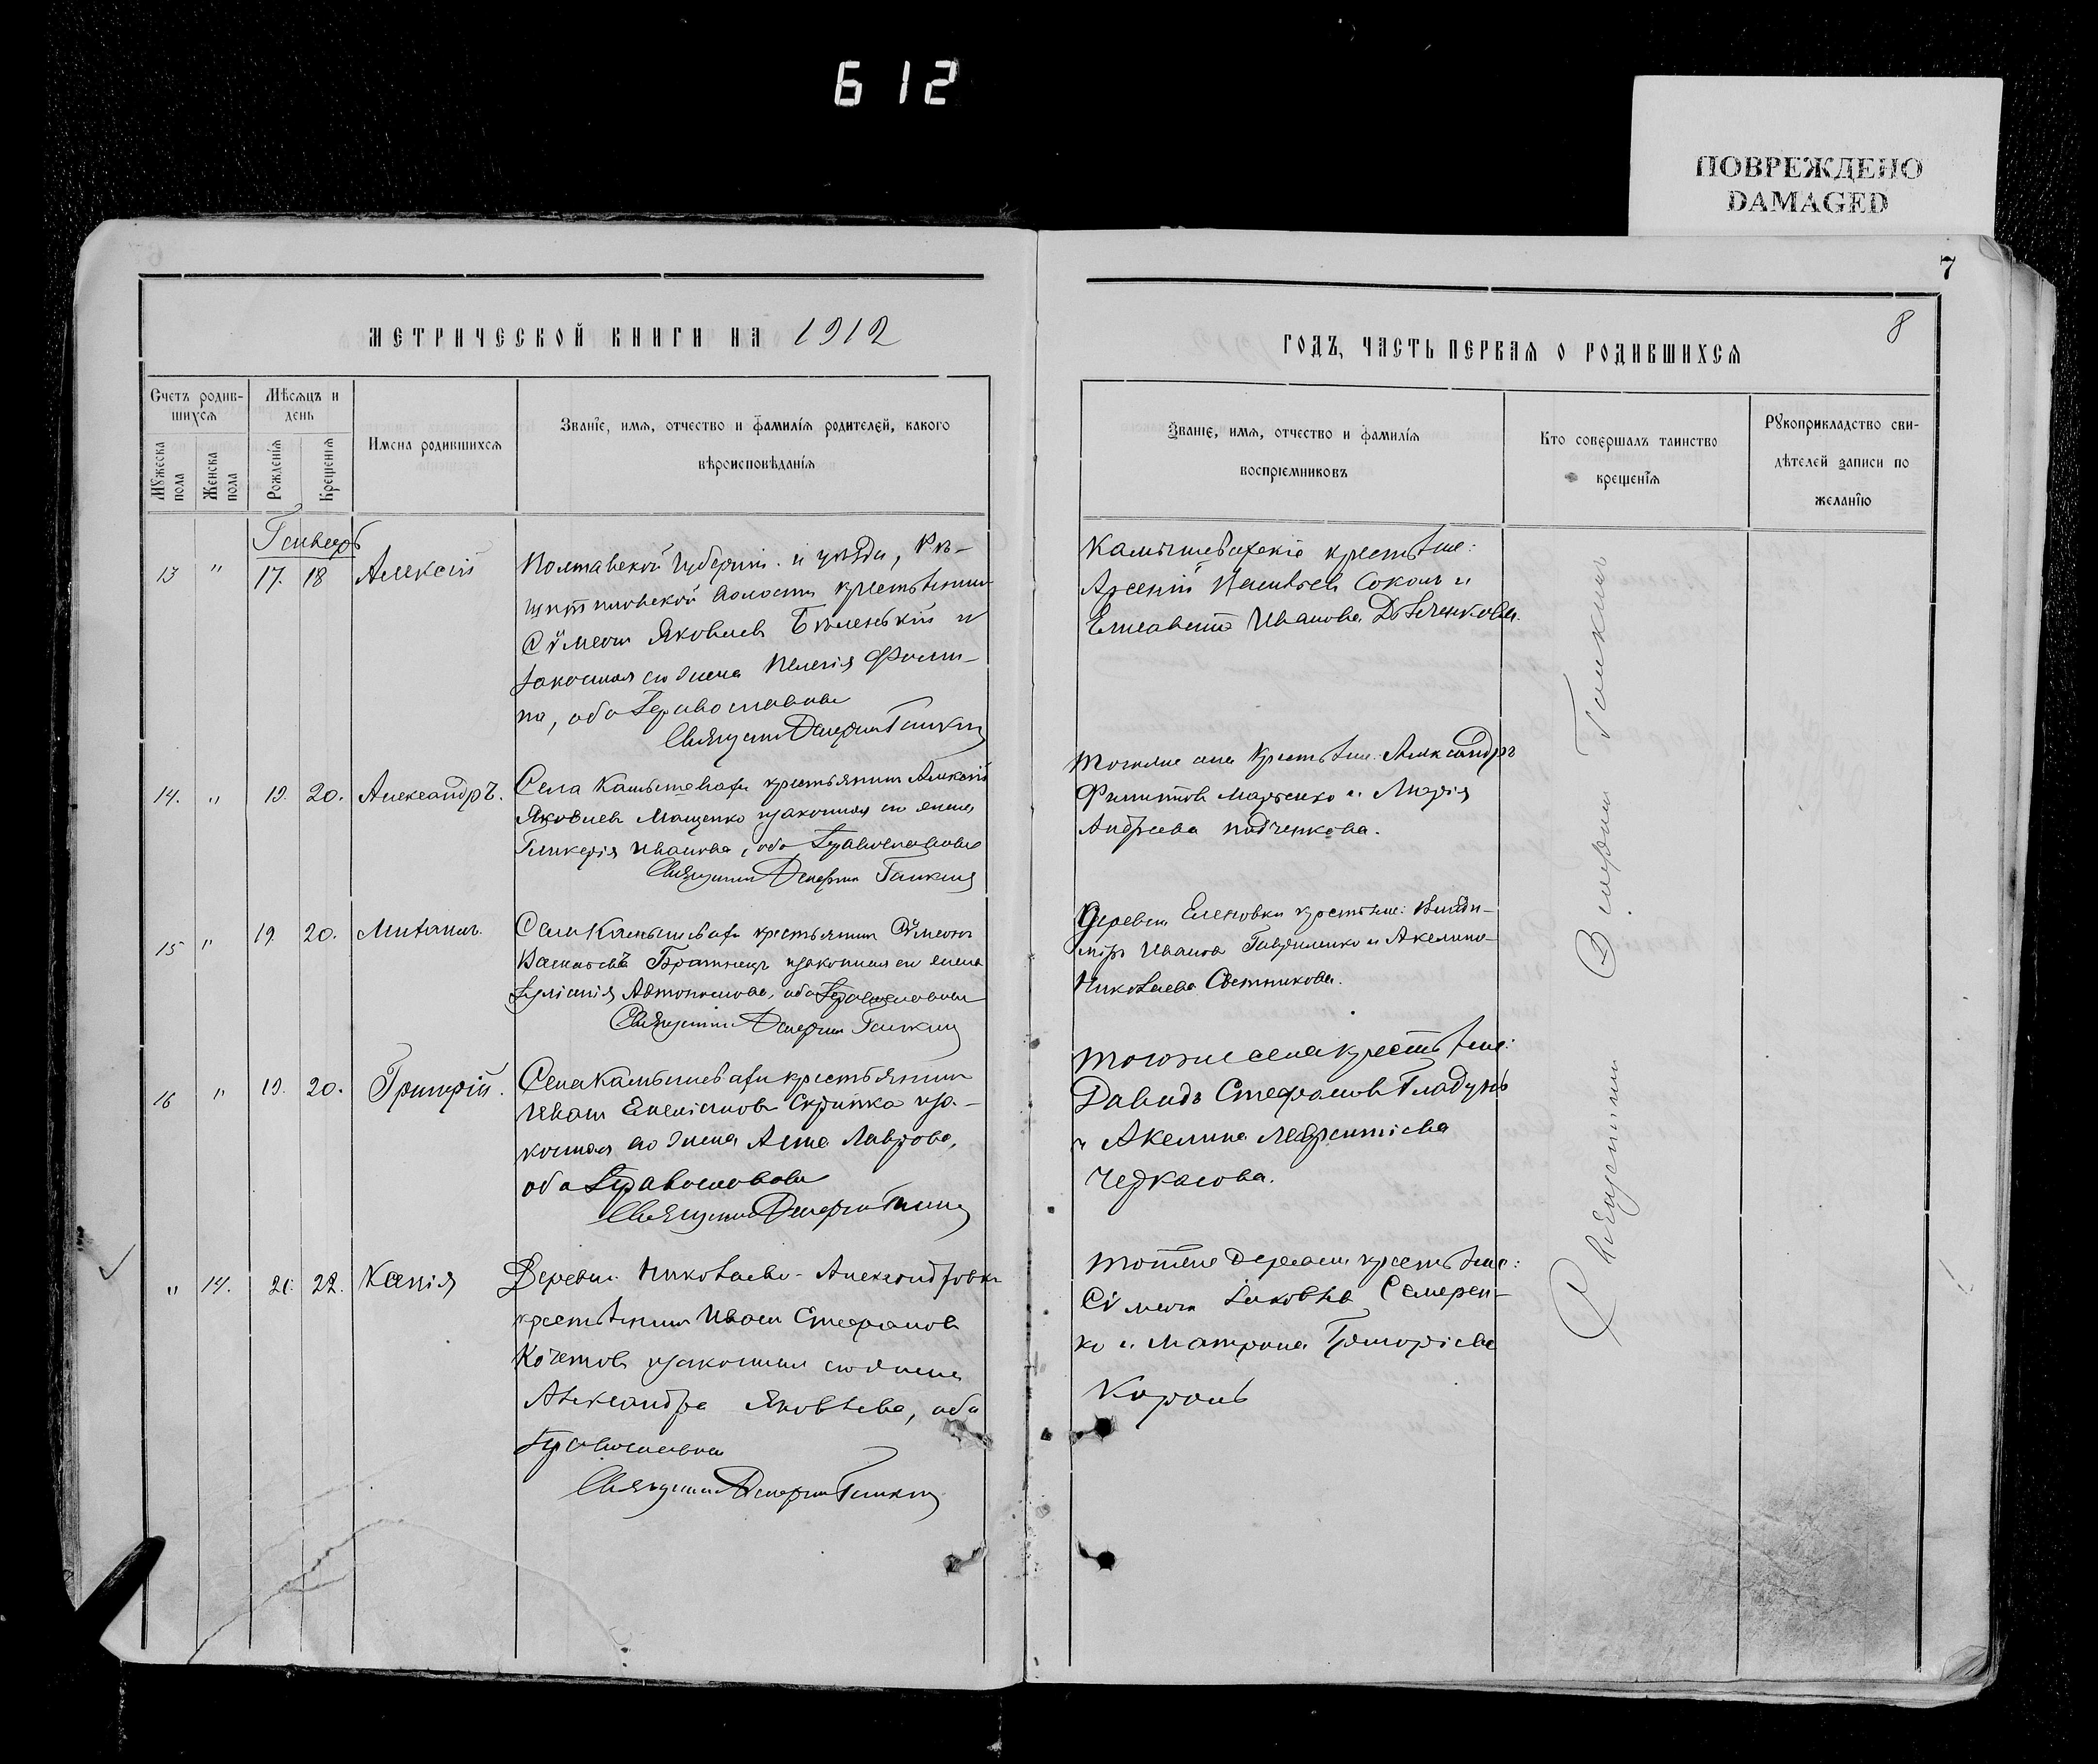 612
ПОВРЕЖДЕНО
DAMAGED
7
8
МЕТРИЧЕСКОЙ КНИГИ НА 1912
ГОДЪ, ЧАСТЬ ПЕРВАЯ О РОДИВШИХСЯ
Счетъ родив-
шихся
Мѣсяцъ и
день
Мужеска
пола
Женска
пола
Рожденія
Крещенія
Имена родившихся
Званіе, имя, отчество и фамилія родителей, какого
вѣроисповѣданія
Званіе, имя, отчество и фамилія
воспріемниковъ
Кто совершалъ таинство
крещенія
Рукоприкладство сви-
дѣтелей записи по
желанію
Генварь
13 " 17. 18 Алексій
Полтавской губерніи и уѣзда, Рѣ-
волости крестьянинъ
Сѵмеонъ Яковлевъ Бѣленькій и
законная его жена Пелагія Филип-
па, оба Православные
Священникъ Валеріанъ Галкинъ
Камышевахскіе крестьяне:
Арсеній Соколъ и
Елисавета Иванова
14. " 19. 20. Александръ.
Села Камышевахи крестьянинъ Алексій
Яковлевъ Мащенко и законная его жена
Гликерія Иванова, оба Православные
Священникъ Валеріанъ Галкинъ
Того же села крестьяне: Александръ
Филиповъ Марченко и Марія
Андреева
15 " 19. 20. Михаилъ.
Села Камышевахи крестьянинъ Сѵмеонъ
Братнецъ и законная его жена
Іуліанія Автономова, оба Православные
Священникъ Валеріанъ Галкинъ
Деревни Еленовки крестьяне: Влади-
міръ Ивановъ Гавриленко и Акелина
Николаева Светникова.
16 " 19. 20. Григорій.
Села Камышевахи крестьянинъ
Иванъ Емеліановъ Скрипка и за-
конная его жена Анна Лаврова,
оба Православные
Священникъ Валеріанъ Галкинъ
Того же села крестьяне:
Давидъ Стефановъ Гладунъ
и Акелина Лаврентіева
Черкасова.
" 14. 21. 22. Ксенія
Деревни Николаево-Александровки
крестьянинъ Иванъ Стефановъ
Кочетовъ и законная его жена
Александра Яковлева, оба
Православные
Священникъ Валеріанъ Галкинъ
Той же деревни крестьяне:
Сѵмеонъ Іаковлевъ Семерен-
ко и Матрона Григоріева
Король
Священникъ Валеріанъ Галкинъ